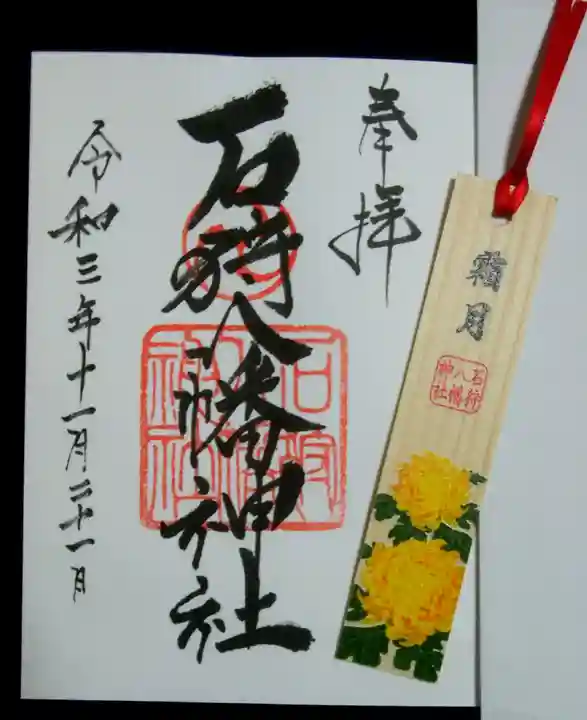 霜月
石狩
八幡
神社
奉拝
石狩八幡神社
令和三年十一月二十一日